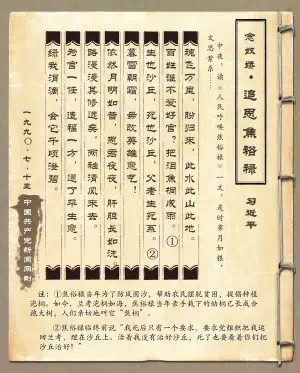 念奴娇·追思焦裕禄
习近平
中夜,读《人民呼唤焦裕禄》一文,是时霁月如银,
文思萦系……
魂飞万里,盼归来,此水此山此地。
百姓谁不爱好官?把泪焦桐成雨。①
生也沙丘,死也沙丘,父老生死系。②
暮雪朝霜,毋改英雄意气!
依然月明如昔,思君夜夜,肝胆长如洗。
路漫漫其修远矣,两袖清风来去。
为官一任,造福一方,遂了平生意。
绿我涓滴,会它千顷澄碧。
一九九〇.七.十五
中国共产党新闻网制
注:①焦裕禄当年为了防风固沙,帮助农民摆脱贫困,提倡种植
泡桐。如今,兰考泡桐如海,焦裕禄当年亲手栽下的幼桐已长成合
抱大树,人们亲切地叫它“焦桐”。
②焦裕禄临终前说“我死后只有一个要求,要求党组织把我运
回兰考,埋在沙丘上。活着我没有治好沙丘,死了也要看着你们把
沙丘治好!”